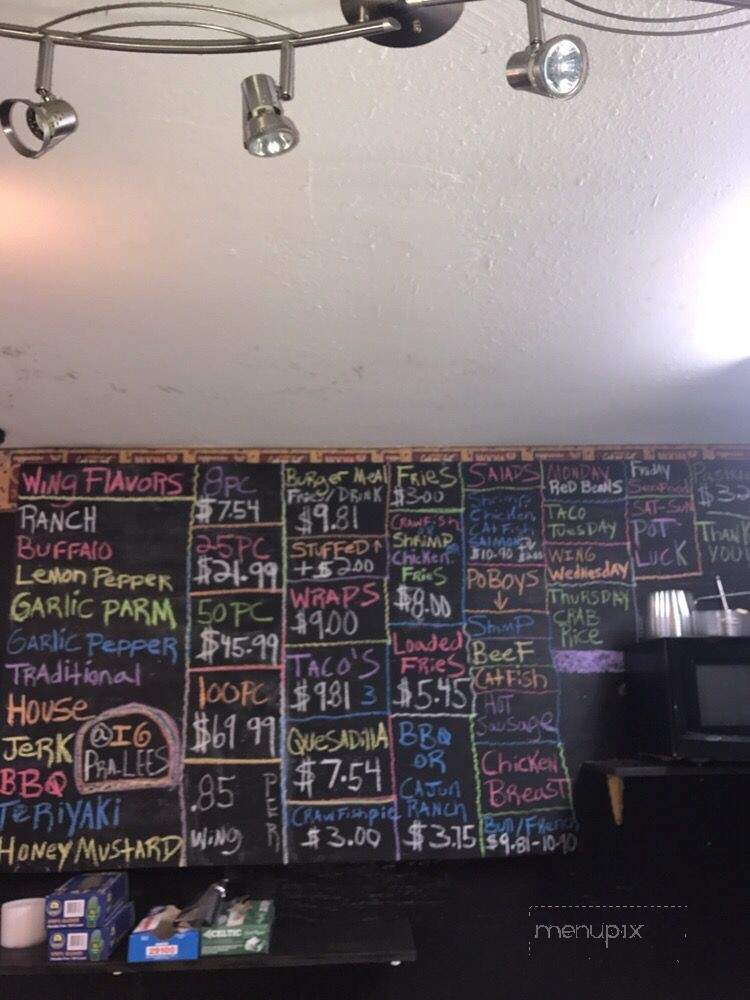 WING FLAVORS
RANCH
BUFFALO
LEMON PEPPER
GARLIC PARM
GARLIC PEPPER
TRADITIONAL
HOUSE
JERK
BBQ
TERIYAKI
HONEY MUSTARD
@IG
PRA-LEES
8PC
$7.54
25PC
$21.99
50PC
$45.99
100PC
$69.99
.85 PER
WING
BURGER MEAL
FRIES/DRINK
$9.81
STUFFED↑
+$2.00
WRAPS
$9.00
TACO'S
$9.81 3
QUESADILLA
$7.54
CRAWFISHPIE
$3.00
FRIES
$3.00
CRAWFISH
SHRIMP
CHICKEN
FRIES
$8.00
LOADED
FRIES
$5.45
BBQ
OR
CAJUN
RANCH
$3.75
SALADS
SHRIMP
CHICKEN
CATFISH
SALMON
$10.90
POBOYS
↓
SHRIMP
BEEF
CATFISH
HOT
SAUSAGE
CHICKEN
BREAST
BUN/FRENCH
$9.81-10.90
MONDAY
RED BEANS
TACO
TUESDAY
WING
WEDNESDAY
THURSDAY
CRAB
RICE
FRIDAY
SEAFOOD
SAT-SUN
POT
LUCK
THANK
YOU!
CELTIC
29100
menupix